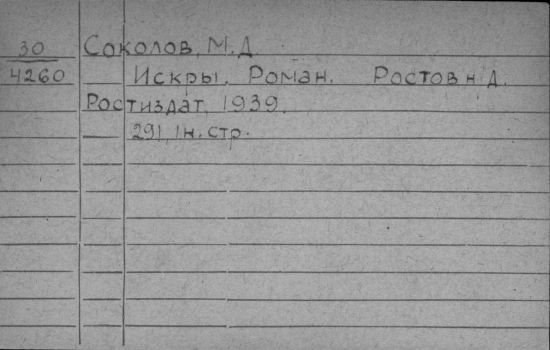 30 Соколов, М.Д.
4260 Искры. Роман. Ростов н Д.
Ростиздат, 1939.
291, 1 н. стр.